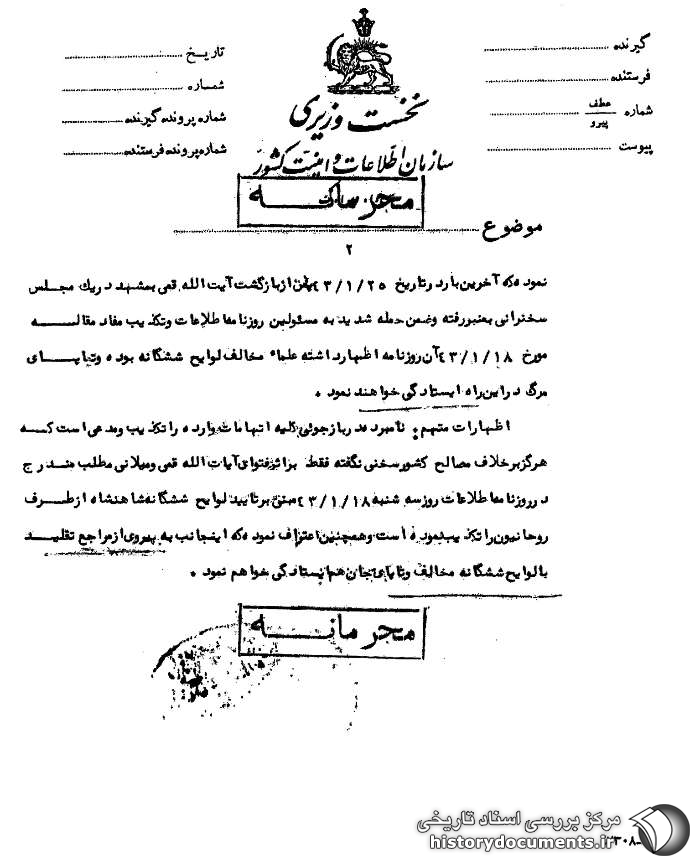 گیرنده
فرستنده
شماره عطف پیرو
پیوست
تاریخ
شماره
شماره پرونده گیرنده
شماره پرونده فرستنده
نخست وزیری
سازمان اطلاعات و امنیت کشور
محرمانه
موضوع
۲
نموده که آخرین بار در تاریخ ۴۳/۱/۲۵ پس از بازگشت آیت الله قمی بمشهد در یک مجلس
سخنرانی بمنبر رفته و ضمن حمله شدید به مسئولین روزنامه اطلاعات و تکذیب مفاد مقاله
مورخ ۴۳/۱/۱۸ آن روزنامه اظهار داشته علماء مخالف لوایح ششگانه بوده و تا پای
مرگ در این راه ایستادگی خواهند نمود .
اظهارات متهم : نامبرده در بازجوئی کلیه اتهامات وارده را تکذیب و مدعی است که
هرگز بر خلاف مصالح کشور سخنی نگفته فقط بنا بر فتوای آیات الله قمی و میلانی مطلب مندرج
در روزنامه اطلاعات روز سه شنبه ۴۳/۱/۱۸ مبنی بر تایید لوایح ششگانه شاهنشاه از طرف
روحانیون را تکذیب نموده است و همچنین اعتراف نموده که اینجانب به پیروی از مراجع تقلید
با لوایح ششگانه مخالف و تا پای جان هم ایستادگی خواهم نمود .
محرمانه
مرکز بررسی اسناد تاریخی
historydocuments.ir